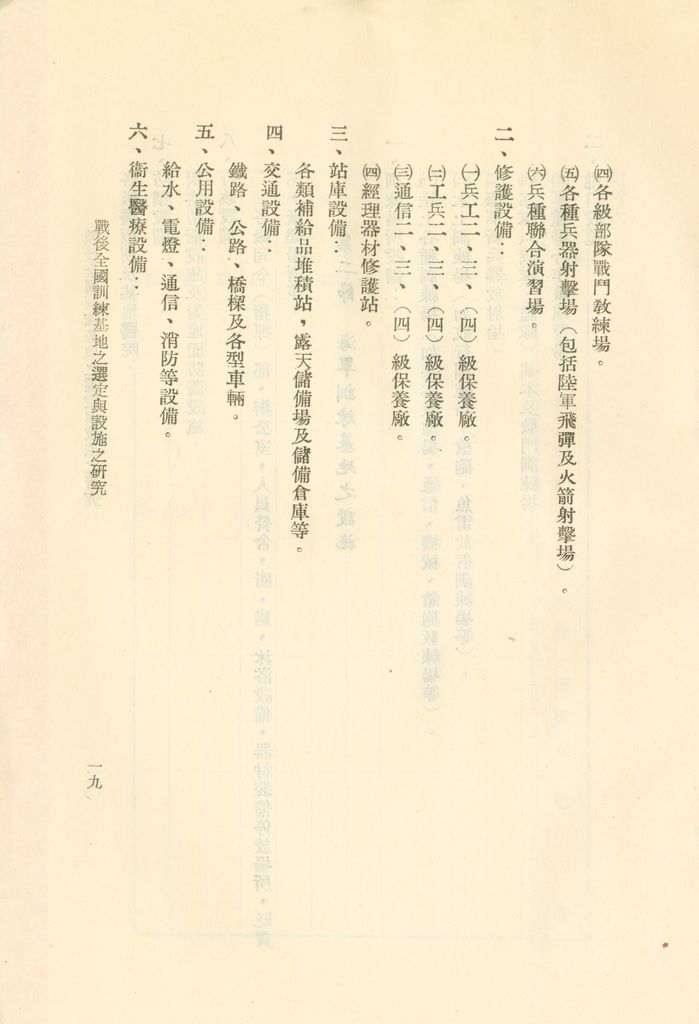 ㈣各級部隊戰鬥教練場。
㈤各種兵器射擊場（包括陸軍飛彈及火箭射擊場）。
㈥兵種聯合演習場。
二、修護設備：
㈠兵工二、三、（四）級保養廠。
㈡工兵二、三、（四）級保養廠。
㈢通信二、三、（四）級保養廠。
㈣經理器材修護站。
三、站庫設備：
各類補給品堆積站，露天儲備場及儲備倉庫等。
四、交通設備：
鐵路、公路、橋樑及各型車輛。
五、公用設備：
給水、電燈、通信、消防等設備。
六、衛生醫療設備：
戰後全國訓練基地之選定與設施之研究
一九